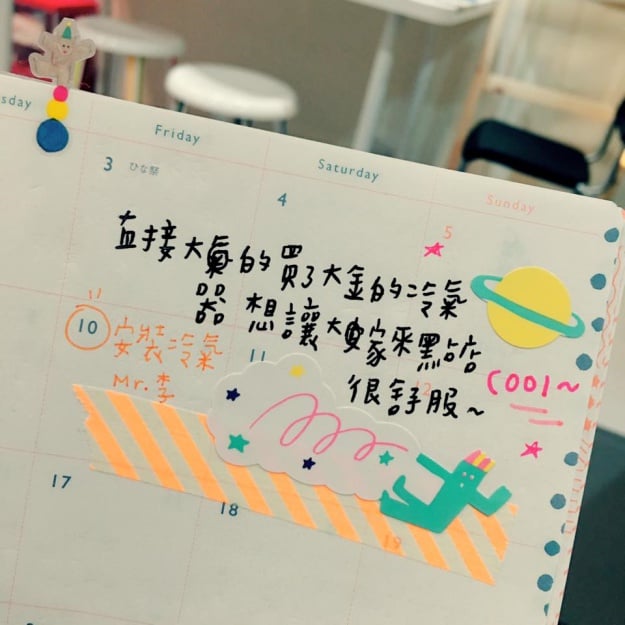 sday
Friday
Saturday
Sunday
3 ひな祭
4
5
直接大氣的買了大金的冷氣
器 想讓大家來黑占店
很舒服~
COOL~
10 安裝冷氣
Mr. 李
11
12
17
18
19